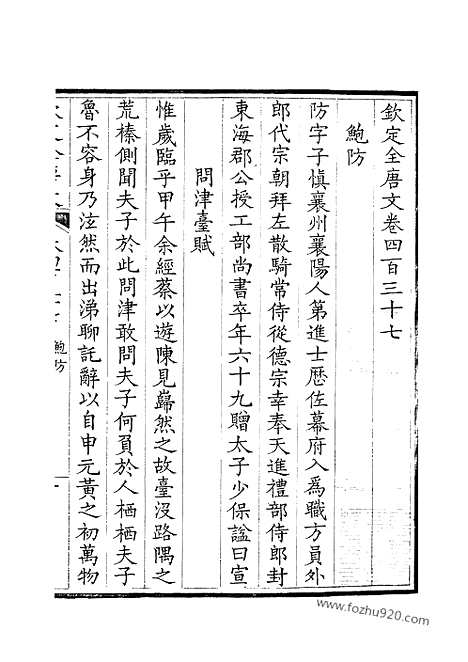 欽定全唐文卷四百三十七
鮑防
防字子慎襄州襄陽人第進士歷佐幕府入爲職方員外
郎代宗朝拜左散騎常侍從德宗幸奉天進禮部侍郎封
東海郡公授工部尚書卒年六十九贈太子少保諡曰宣
問津臺賦
惟歲臨乎甲午余經蔡以遊陳見巋然之故臺沒路隅之
荒榛側聞夫子於此問津敢問夫子何負於人栖栖夫子
魯不容身乃泫然而出涕聊託辭以自申元黃之初萬物
鮑防
www.fozhu920.com